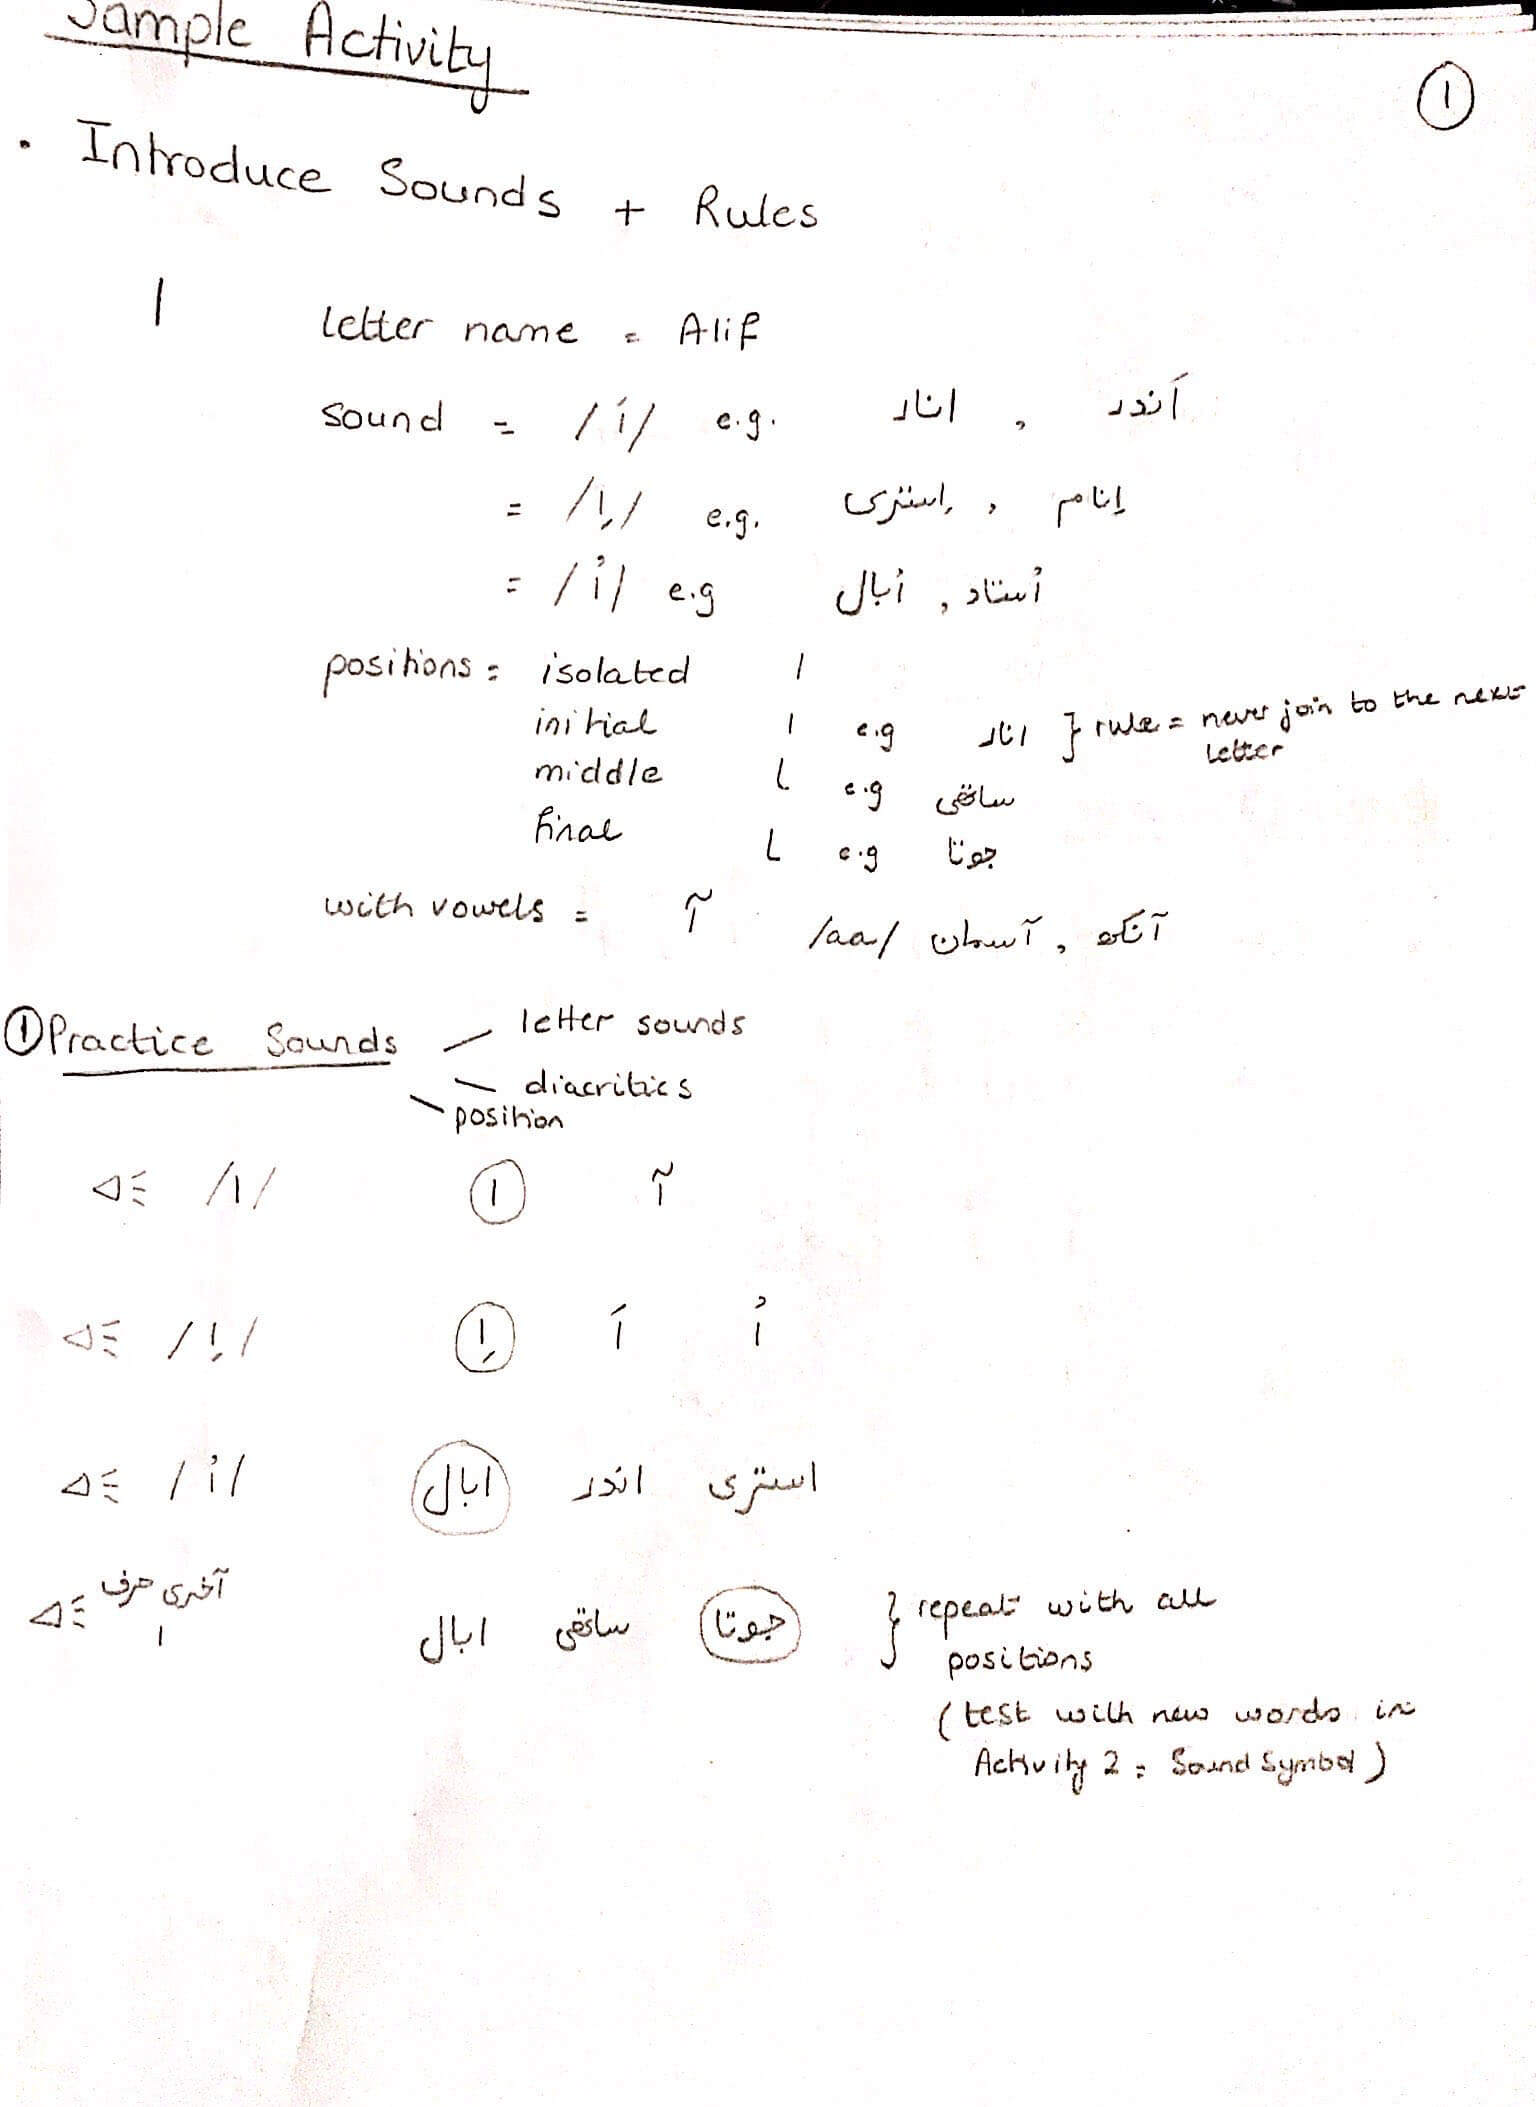 Sample Activity
①
• Introduce Sounds + Rules
ا letter name = Alif
sound = /اَ/ e.g. انار , اَندر
= /اِ/ e.g. اِستری , اِنام
= /اُ/ e.g اُبال , اُستاد
positions = isolated ا
initial ا e.g انار } rule = never join to the next letter
middle ـا e.g ساتھی
final ـا e.g جوتا
with vowels = آ /aa/ آسمان , آنکھ
① Practice Sounds - letter sounds
- diacritics
- position
/ا/ ا آ
/اِ/ اِ اَ اُ
/اُ/ ابال اندر استری
آخری حرف
ا ابال ساتھی جوتا } repeat with all
positions
(test with new words in
Activity 2 = Sound Symbol)